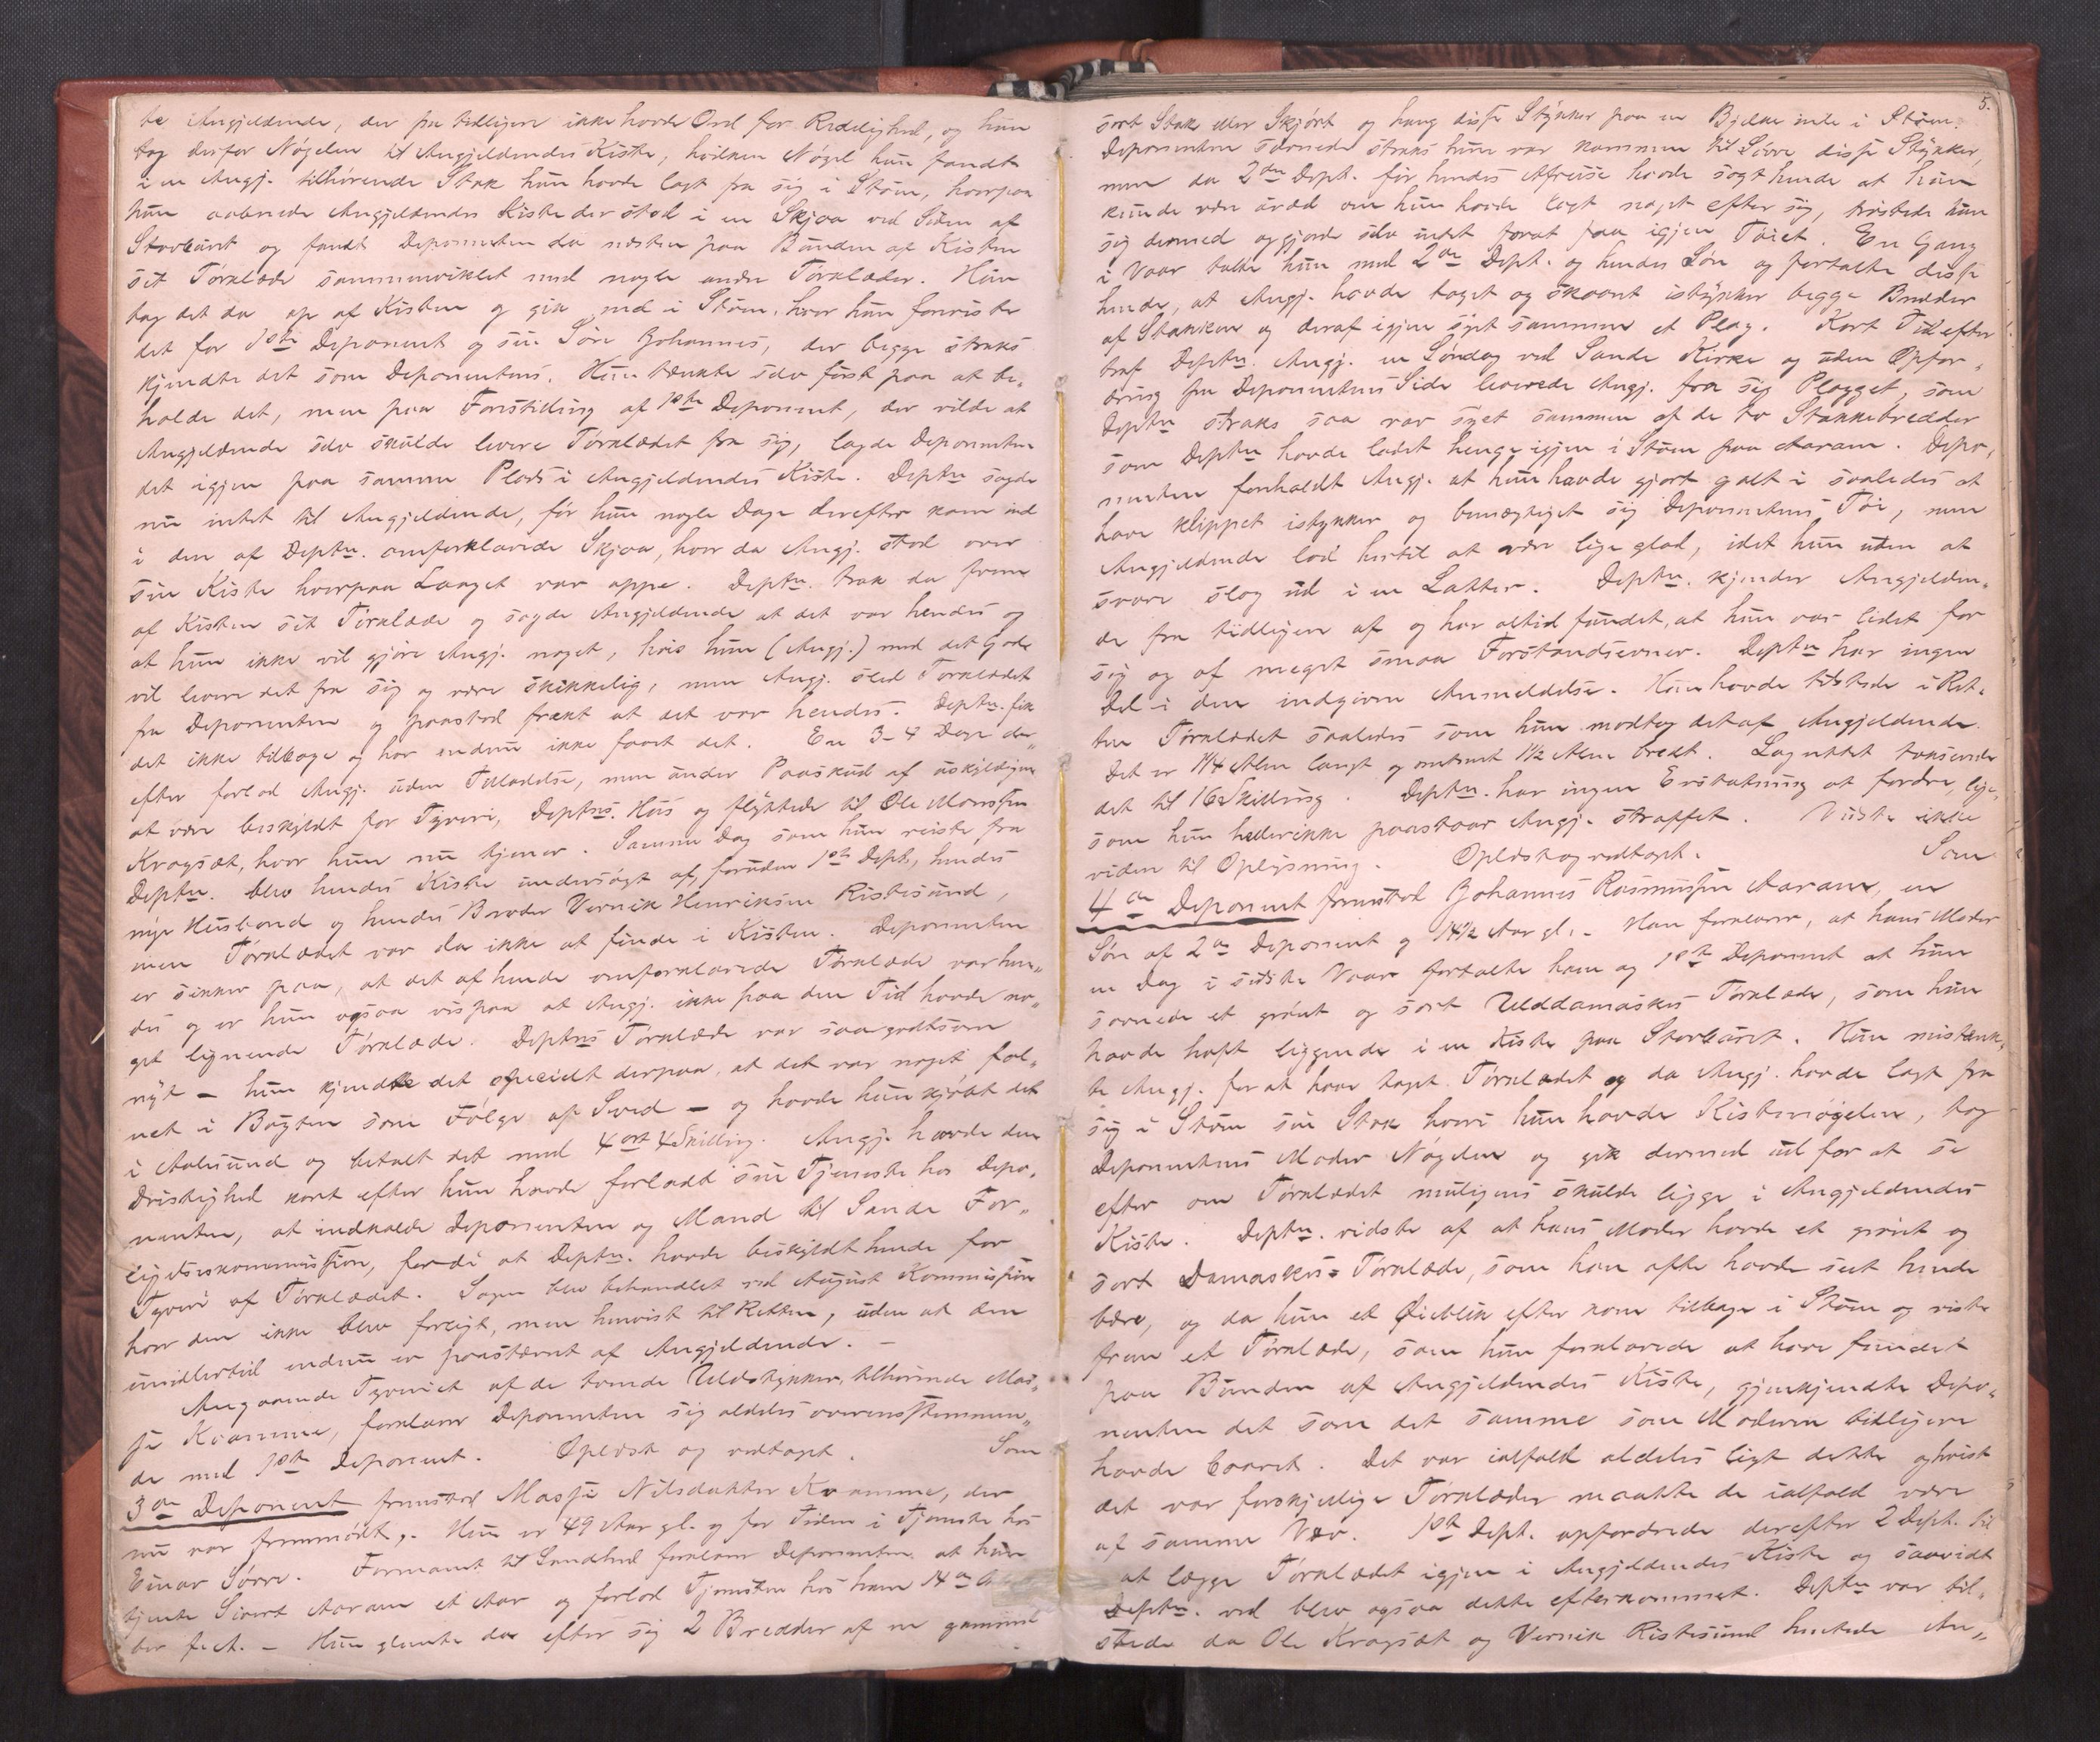 te Angjeldende, der fra tidligere ikke havde Ord for Redelighed, og hun
tog derfor Nøgelen til Angjeldendes Kiste, hvilken Nøgel hun fandt
i en Angj. tilhørende Stak hun havde lagt fra sig i Stuen, hvorpaa
hun aabnede Angjeldendes Kiste der stod i en Skjaa ved Siden af
Stovburet og fandt Deponenten da næsten paa Bunden af Kisten
sit Tørklæde sammenviklet med nogle andre Tørklæder. Hun
tog det da op af Kisten og gik ind i Stuen, hvor hun foreviste
det for 1ste Deponent og sin Søn Johannes, der begge straks
kjendte det som Deponentens. Hun tænkte selv først paa at be-
holde det, men paa Forestilling af 1ste Deponent, der vilde at
Angjeldende selv skulde levere Tørklædet fra sig, lagde Deponenten
det igjen paa samme Plads i Angjeldendes Kiste. Deptn sagde
nu intet til Angjeldende, før hun nogle Dage derefter kom ind
i den af Deptn. omforklarede Skjaa, hvor da Angj. stod over
sin Kiste hvorpaa Laaget var oppe. Deptn. trak da frem
af Kisten sit Tørklæde og sagde Angjeldende at det var hendes og
at hun ikke vil gjøre Angj. noget, hvis hun (Angj.) med det Gode
vil levere det fra sig og være skikkelig, men Angj. sled Tørklædet
fra Deponenten og paastod frækt at det var hendes. Deptn. fik
det ikke tilbage og har endnu ikke faaet det. En 3-4 Dage der-
efter forlod Angj. uden Tilladelse, men under Paaskud af uskyldigen
at være beskyldt for Tyveri, Deptns. Hus og flyttede til Ole Monssen
Kragsæt, hvor hun nu tjener. Samme Dag som hun reiste fra
Deptn. blev hendes Kiste undersøgt af, foruden 1ste Dept, hendes
nye Husbond og hendes Broder Vernik Henriksen Ristesund,
men Tørklædet var da ikke at finde i Kisten. Deponenten
er sikker paa, at det af hende omforklarede Tørklæde var hen-
des og er hun ogsaa vis paa at Angj. ikke paa den Tid havde no-
get lignende Tørklæde. Deptns Tørklæde var saagodtsom
nyt – hun kjendte det specielt derpaa, at det var noget fal-
met i Bugten som Følge af Sved – og havde hun kjøbt det
i Aalesund og betalt det med 4 ort 4 Skilling. Angj. havde den
Dristighed kort efter hun havde forladt sin Tjeneste hos Depo-
nenten, at indkalde Deponenten og Mand til Sande For-
ligelseskommission, fordi at Deptn. havde beskyldt hende for
Tyveri af Tørklædet. Sagen blev behandlet ved August Kommission
hvor den ikke blev forligt, men henvist til Retten, uden at den
imidlertid endnu er paastævnt af Angjeldende. –
Angaaende Tyveriet af de tvende Uldstykker, tilhørende Mas-
si Kvamme, forklarer Deponenten sig aldeles overensstemmen-
de med 1ste Deponent. Oplæst og vedtaget. Som
3die Deponent fremstod Massi Nilsdatter Kvamme, der
nu var fremmødt. Hun er 49 Aar gl. og for Tiden i Tjeneste hos
Einar Sørre. Formanet til Sandhed forklarer Deponenten at hun
tjente Sivert Aaram et Aar og forlod Tjenesten hos ham 14de
ber sidst. – Hun glemte da efter sig 2 Bredder af en gammel
5.
sort Stak eller Skjørt og hang disse Stykker paa en Bjelke inde i Stuen.
Deponenten savnede straks hun var kommen til Sørre disse Stykker,
men da 2den Dept. før hendes Afreise havde sagt hende at hun
kunde være uræd om hun havde lagt noget efter sig, trøstede hun
sig dermed og gjorde selv intet forat faa igjen Tøiet. En Gang
i Vaar talte hun med 2den Dept. og hendes Søn og fortalte disse
hende, at Angj. havde taget og skaaret istykker begge Bredder
af Stakken og deraf igjen syet sammen et Plag. Kort Tid efter
traf Deptn. Angj. en Søndag ved Sande Kirke og uden Opfor-
dring fra Deponentens Side leverede Angj. fra sig Plagget, som
Deptn straks saa var syet sammen af de to Stakkebredder
som Deptn havde ladet henge igjen i Stuen paa Aaram. Depo-
nenten foreholdt Angj. at hun havde gjort galt i saaledes at
have klippet istykker og bemægtiget sig Deponentens Tøi, men
Angjeldende lod hertil at være lige glad, idet hun uden at
svare slog ud i en Latter. Deptn. kjender Angjelden-
de fra tidligere af og har altid fundet, at hun var lidet for
sig og af meget smaa Forstandsevner. Deptn har ingen
Del i den indgivne Anmeldelse. Hun havde tilstede i Ret-
ten Tørklædet saaledes som hun modtog det af Angjeldende.
Det er 1 1/4 Alen langt og omtrent 1 1/2 Alen bredt. Lagrettet takserede
det til 16 Skilling. Deptn. har ingen Erstatning at fordre, lige-
som hun heller ikke paastaar Angj. straffet. Vidste ikke
viden til Oplysning. Oplæst og vedtaget. Som
4de Deponent fremstod Johannes Rasmussen Aaram, en
Søn af 2den Deponent og 14 1/2 Aar gl. – Han forklarer, at hans Moder
en Dag i sidste Vaar fortalte ham og 1ste Deponent at hun
savnede et grønt og sort Ulddamaskes Tørklæde, som hun
havde havt liggende i en Kiste paa Stovburet. Hun mistænk-
te Angj. for at have taget Tørklædet og da Angj. havde lagt fra
sig i Stuen sin Stak hvori hun havde Kistenøgelen, tog
Deponentens Moder Nøgelen og gik dermed ud for at se
efter om Tørklædet muligens skulde ligge i Angjeldendes
Kiste. Deptn. vidste af at hans Moder havde et grønt og
sort Damaskes- Tørklæde, som han ofte havde seet hende
bære, og da hun et Øieblik efter kom tilbage i Stuen og viste
frem et Tørklæde, som hun forklarede at have fundet
paa Bunden af Angjeldendes Kiste, gjenkjendte Depo-
nenten det som det samme som Moderen tidligere
havde baaret. Det var ialfald aldeles ligt dette og hvis
det var forskjellige Tørklæder maatte de ialfald være
af samme Væv. 1ste Dept. opfordrede derefter 2 Dept. til
at lægge Tørklædet igjen i Angjeldendes Kiste og saavidt
Deptn. ved blev ogsaa dette efterkommet. Deptn var til-
stede da Ole Kragsæt og Vernik Ristesund hentede An-